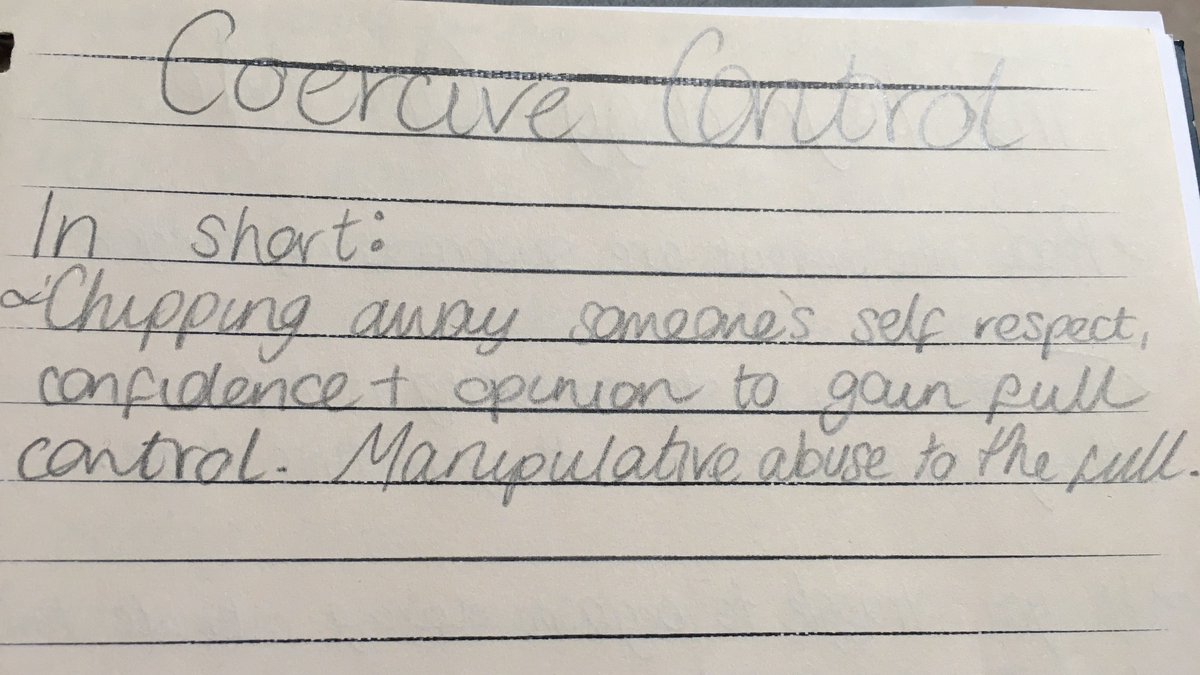 Coercive Control
In short:
Chipping away someone's self respect,
confidence + opinion to gain full
control. Manipulative abuse to the full.